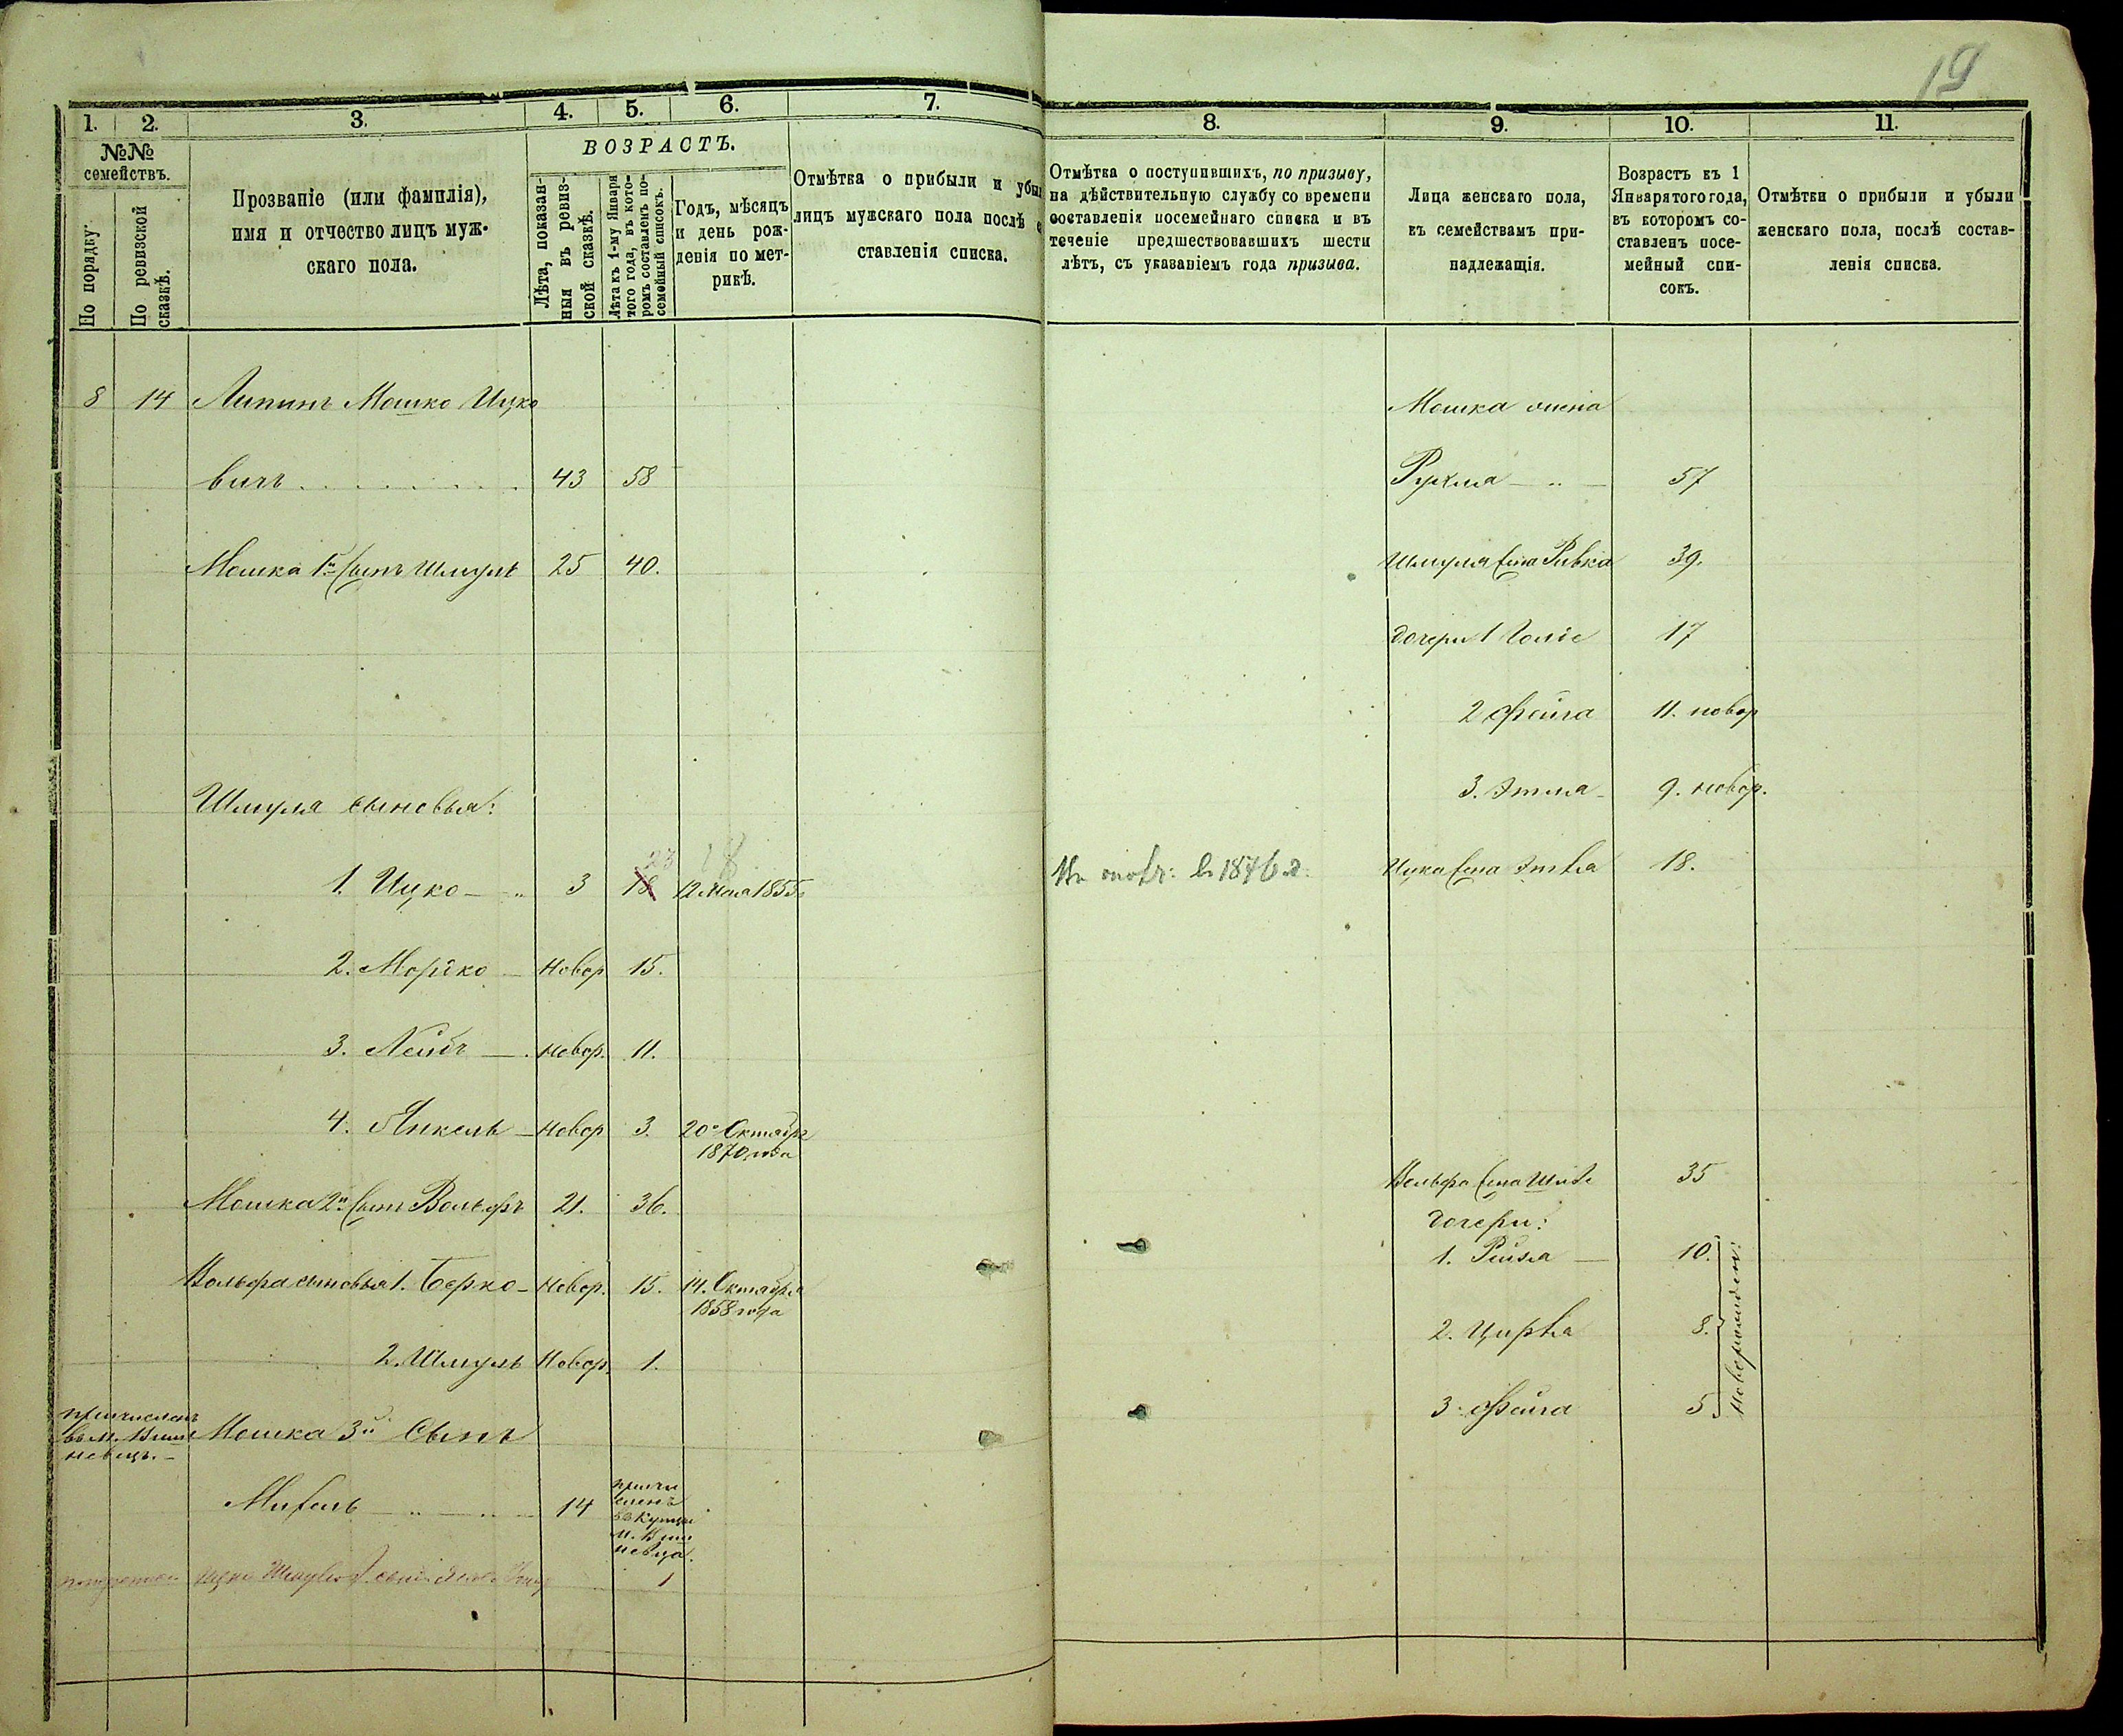 19
1. 2. 3. 4. 5. 6. 7.
№№ семействъ.
По порядку.
По ревизской сказкѣ.
Прозваніе (или фамилія),
имя и отчество лицъ муж-
скаго пола.
ВОЗРАСТЪ.
Лѣта, показан-
ныя въ ревиз-
ской сказкѣ.
Лѣта къ 1-му Января
того года, въ кото-
ромъ составленъ по-
семейный списокъ.
Годъ, мѣсяцъ
и день рож-
денія по мет-
рикѣ.
Отмѣтка о прибыли и убы
лицъ мужскаго пола послѣ с
ставленія списка.
8 14 Липинъ Мошко Ицко
вичъ 43 58
Мошка 1й Сынъ Шмуль 25 40.
Шмуля сыновья:
1. Ицко 3 18 23 18 12 Мая 1855г.
2. Моріко Новор 15.
3. Лейбъ Новор. 11.
4. Янкель Новор 3. 20го Октября
1870 года
Мошка 2й Сынъ Вольфъ 21. 36.
Вольфа сыновья 1. Берко Новор. 15. 14. Октября
1858 года
2. Шмуль Новор. 1.
причисленъ
въ м. Виш
невцъ.
Мошка 3й Сынъ
Михель 14
причи
сленъ
въ купцы
м. Виш
невца.
Ицко сынъ 1
8. 9. 10. 11.
Отмѣтка о поступившихъ, по призыву,
на дѣйствительную службу со времени
составленія посемейнаго списка и въ
теченіе предшествовавшихъ шести
лѣтъ, съ указаніемъ года призыва.
Лица женскаго пола,
къ семействамъ при-
надлежащія.
Возрастъ къ 1
Января того года,
въ которомъ со-
ставленъ посе-
мейный спи-
сокъ.
Отмѣтки о прибыли и убыли
женскаго пола, послѣ состав-
ленія списка.
Мошка жена
Рухля 57
Шмуля жена Ривка 39.
дочери 1 17
2 Фейга 11. новор
3. Этля 9. новор.
въ 1876 г. Ицка жена Этка 18.
Вольфа жена 35
дочери:
1. Рейзя 10.
2. Цирка 8.
3. Фейга 5
новорожден: